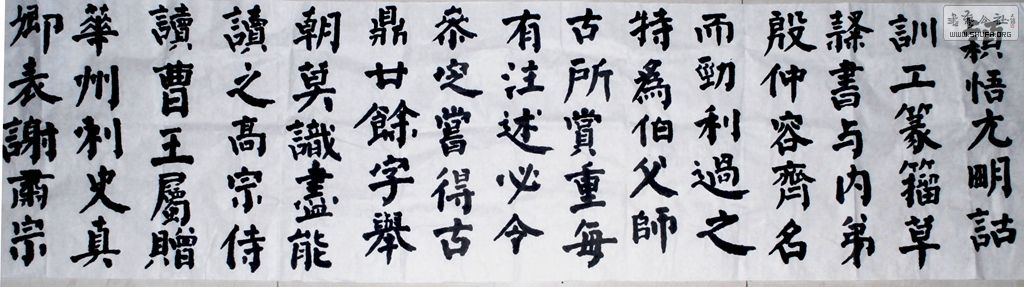 穎悟尤明詁
訓工篆籀草
隸書与内弟
殷仲容齊名
而勁利過之
特為伯父師
古所賞重每
有注述必令
参定嘗得古
鼎廿餘字舉
朝莫識盡能
讀之高宗侍
讀曹王屬贈
華州刺史真
卿表謝肅宗
WWW.SHUFA.ORG